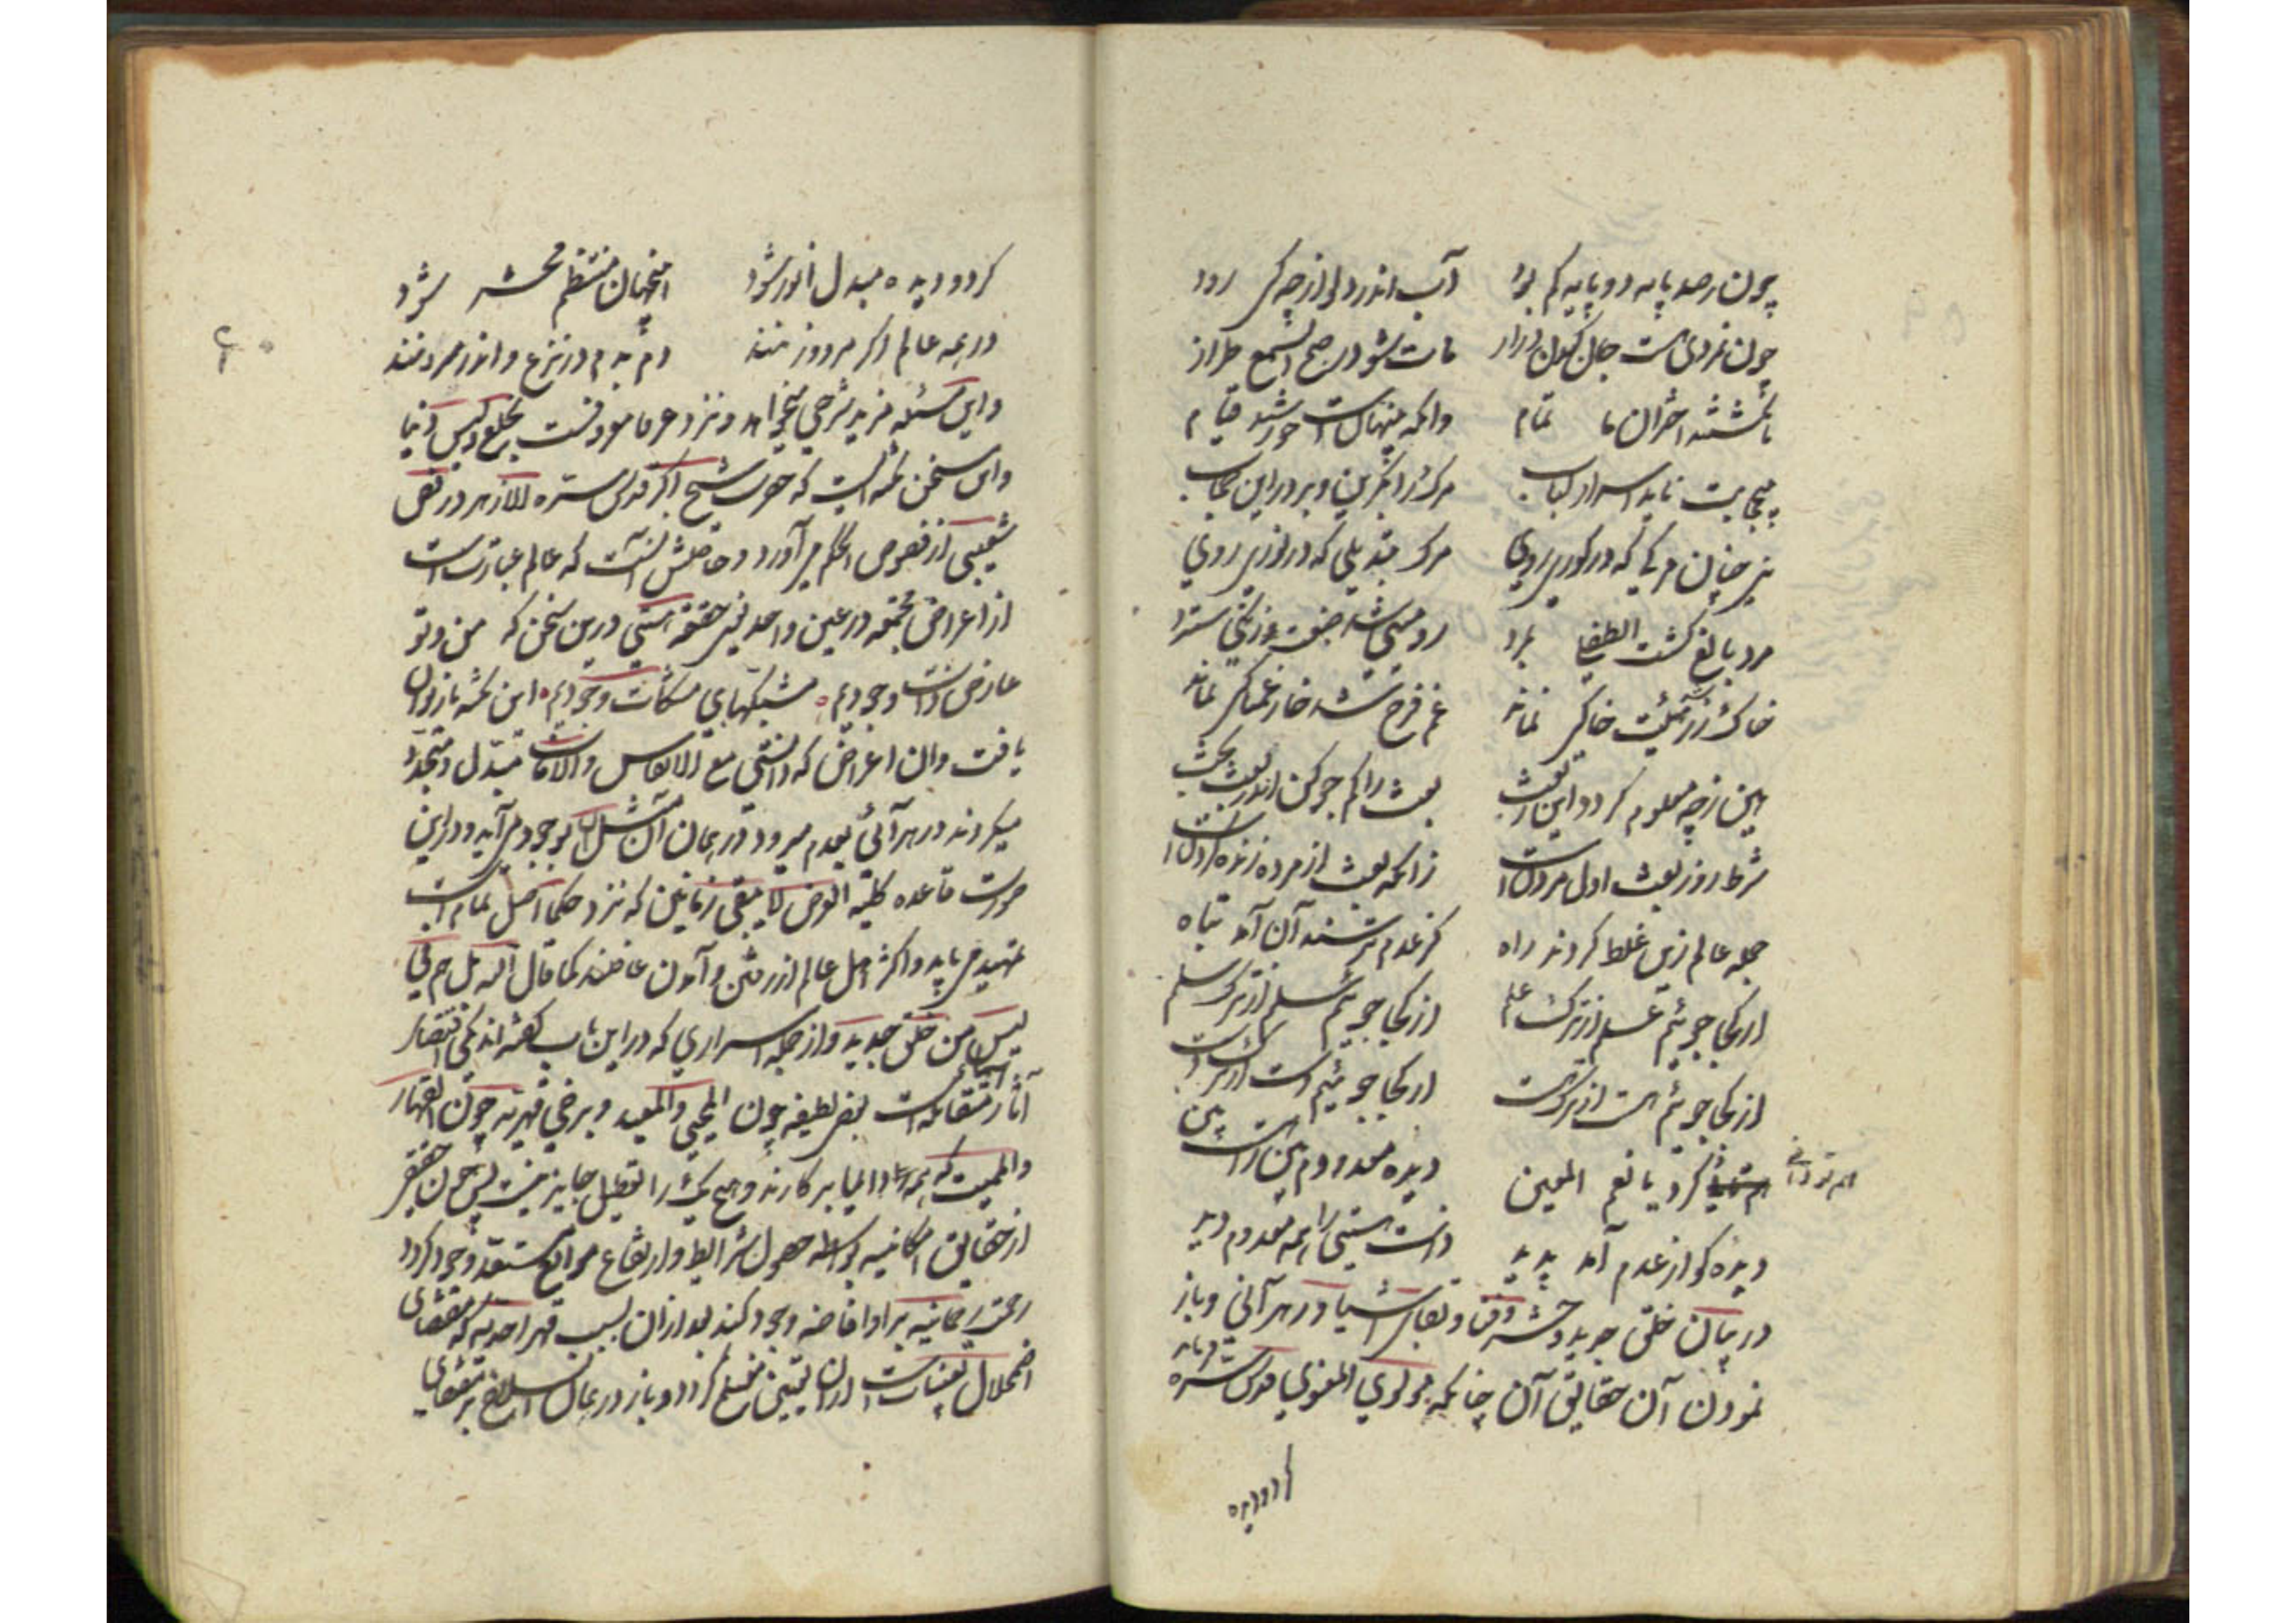 چون ز صد پایه دو پایه کم بود آب اندر دلو از چه کی رود
چون نمردی گشت جان کندن دراز مات شو در صبح ای شمع طراز
تا نگشتند اختران ما تمام دانکه پنهانست خورشید قیام
بی حجابت باید اسرار کتاب مرک را بگزین و بر در این حجاب
نی چنان مرکی که در کوری روی مرک تبدیلی که در نوری روی
مرد بالغ گشت الطفلی بمرد رومیی شد صبغت زنگی سترد
خاک زر شد هیئت خاکی نماند غم فرح شد خار غمناکی نماند
هین ز چه معلوم کردد این ز بعث بعث را کم جو کن اندر بعث بحث
شرط روز بعث اول مردنست زانکه بعث از مرده زنده کردنست
جمله عالم زین غلط کردند راه کز عدم ترسند آن آمد پناه
از کجا جوئیم علم از ترک علم از کجا جوئیم سلم از ترک سلم
از کجا جوئیم هست از ترک هست از کجا جوئیم دست از ترک دست
هم تو دانی کرد یا نعم المعین دیده معدوم بین را هست بین
دیده کو از عدم آمد پدید ذات هستی را همه معدوم دید
در بیان خلق جدید و حشر و فنا و بقای اشیا در هر آنی و باز
نمودن آن حقایق آن چنانکه مولوی المعنوی قدس سره فرماید
کر دو دیده
۶۰
کر دو دیده مبدل انور شود این جهان منتظم محشر شود
در همه عالم اگر مرد و زنند دم بدم در نزع و اندر مردنند
و این مسئله مزید شرحی میخواهد و نزد عرفا موقوفست بخلع و لبس دنیا
و این سخن نکته ایست که حضرت شیخ اکبر قدس سره الازهر در فص
شعیبی از فصوص الحکم می آورد و حاصلش آنست که عالم عبارتست
از اعراض مجتمعه در عین واحد یعنی حقیقة هستی درین سخن که من و تو
عارض ذات وجودیم مشبکهای مشکات وجودیم این نکته بازتوان
یافت و آن اعراض که دانستی مع الانفاس والآنات متبدل و متجدد
میکردند در هر آنی بعدم میرود در همان آن مثل آن بوجود می آید و در این
صورت قاعده کلیه العرض لا یبقی زمانین که نزد حکما اصل تمام است
تمهید می یابد و اکثر اهل عالم از رفتن و آمدن غافلند کما قال الله بل هم فی
لبس من خلق جدید و از جمله اسراری که در این باب گفته اند یکی اقتضای
آثار اسمای متقابله است بعضی لطیفه چون المحیی والمعید و برخی قهریه چون القهار
والممیت که همه اسما دائما بر کارند و هیچ یک را تعطیل جایز نیست پس چون حقیقتی
از حقایق امکانیه بواسطه حصول شرایط و ارتفاع موانع مستعد وجود کردد
رحمت رحمانیه بر او افاضه وجود کند بعد از آن بسبب قهر احدیه که مقتضای
اضمحلال تعینات است از آن تعین منخلع کردد و باز در همان انسلاخ بر مقتضای